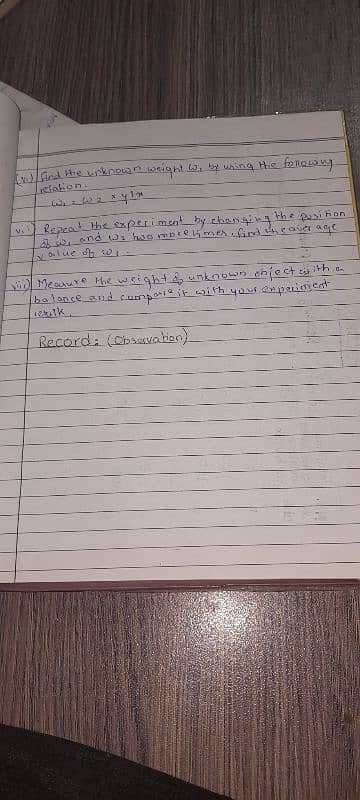 (vi) find the unknown weight w₁ by using the following
relation.
w₁ = w₂ × y/x
vii) Repeat the experiment by changing the position
of w₁ and w₂ two more times. find the aver age
value of w₁.
viii) Measure the weight of unknown object with a
balance and compare it with your experiment
Record: (Observation)